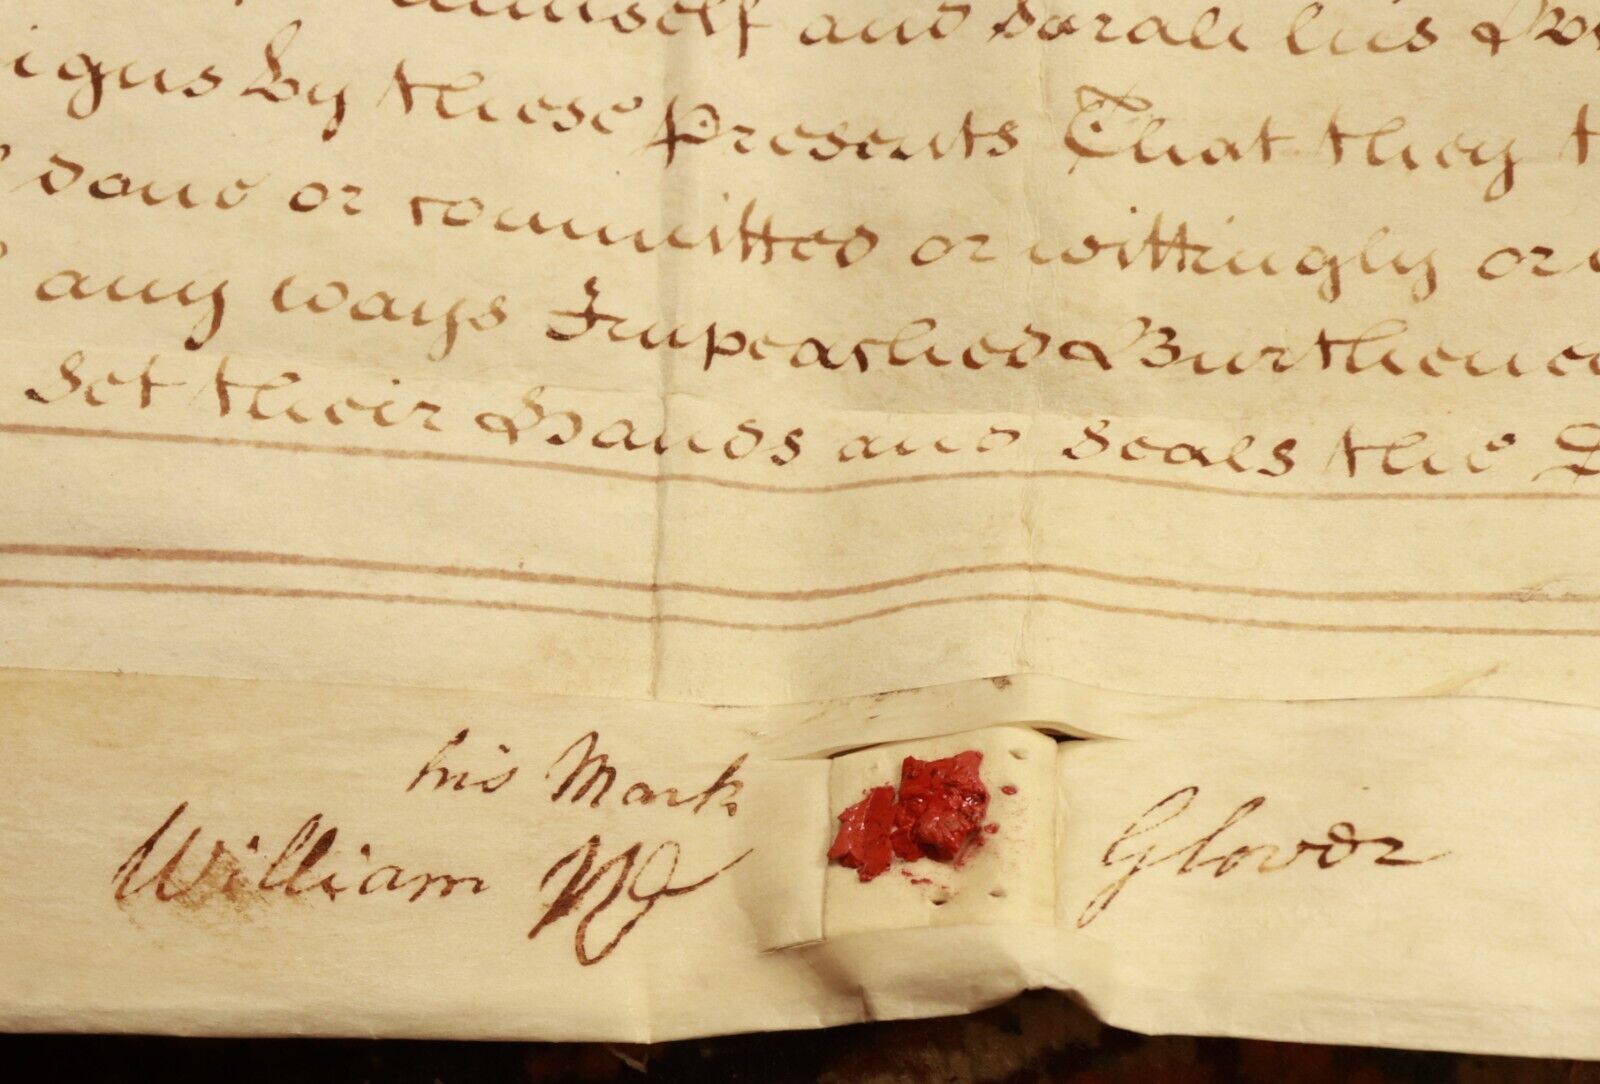 himself and Sarah his
igns by these Presents That they
done or committed or wittingly or
any ways Impeached Burthened
Set their Hands and Seals the
his Mark
William Glover